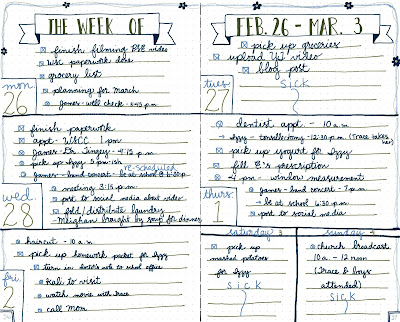 THE WEEK OF
finish filming video
paperwork done
grocery list
planning for March
James - well check - 8:45 a.m.
mon.
26
finish paperwork
appt - 1 p.m.
James - Dr. - 4:15 p.m.
pick up Izzy 5 p.m.-ish
re-scheduled
James - band concert - be at school @ 6:30 p.
meeting 3:15 p.m.
post to social media about video
fold/distribute laundry
Meighan brought by soup for dinner
wed.
28
haircut - 10 a.m.
pick up homework packet for Izzy
turn in doctor's note to school office
Kali to visit
watch movie with Trace
call Mom
fri.
2
FEB. 26 - MAR. 3
pick up groceries
upload video
blog post
SICK
tues.
27
dentist appt - 10 a.m.
Izzy - tonsillectomy - 12:30 p.m. (Trace takes her)
pick up yogurt for Izzy
fill prescription
4 p.m. - window measurement
James - band concert - 7 p.m.
be at school 6:30 p.m.
post to social media
thurs.
1
saturday 3
pick up
mashed potatoes
for Izzy
SICK
sunday 4
church broadcast
10 a.m. - 12 noon
(Trace & boys
attended)
SICK